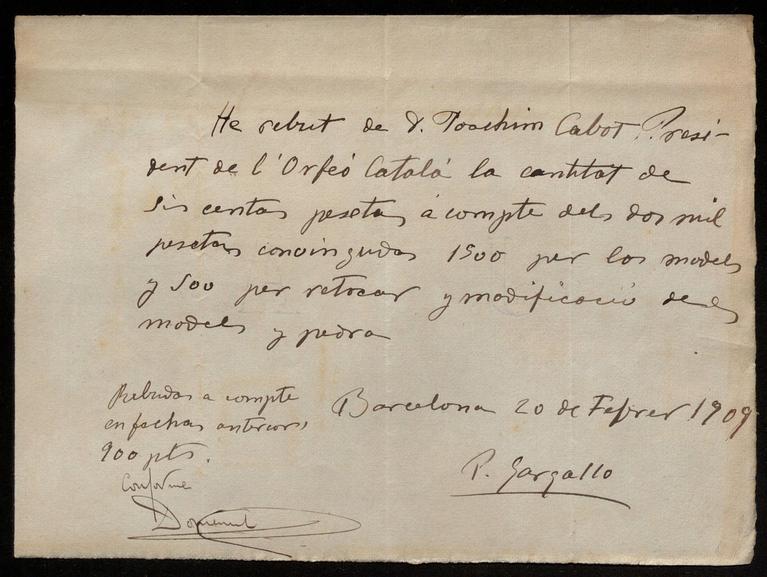 He rebut de D. Joachim Cabot Presi-
dent de l'Orfeó Catalá la cantitat de
sis centas pesetas á compte dels dos mil
pesetas convingudas 1500 per los models
y 500 per retocar y modificació dels
models y pedra
Rebudas a compte
en fechas anteriors
900 pts.
Barcelona 20 de Febrer 1909
P. Gargallo
Conforme
Domenech